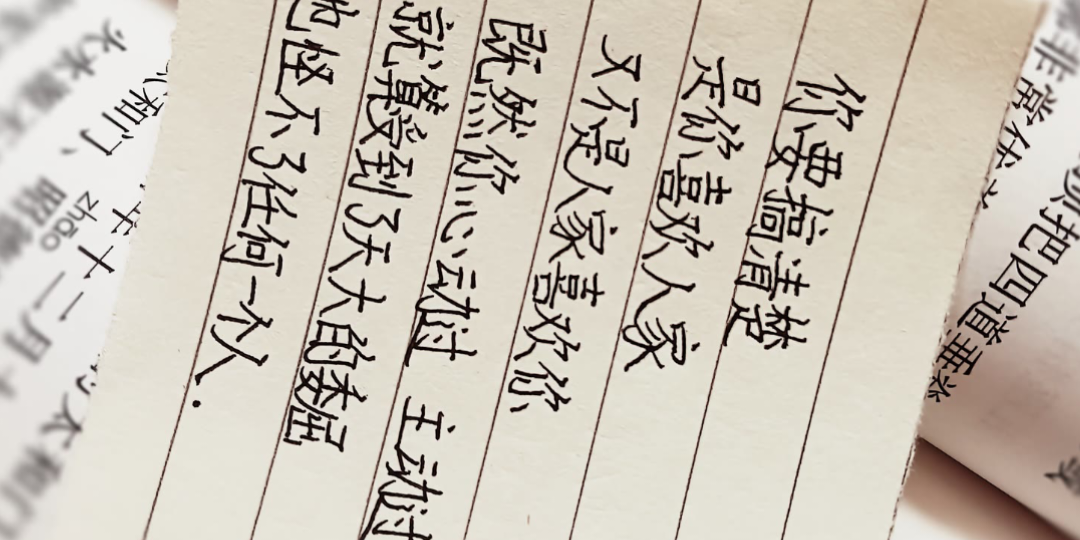 你要搞清楚
是你喜欢人家
又不是人家喜欢你
既然你心动过 主动过
就算受到了天大的委屈
也怪不了任何一个人.
非常
把四道垂
火水
和门、
zhāo
昭
年十二月
太和门